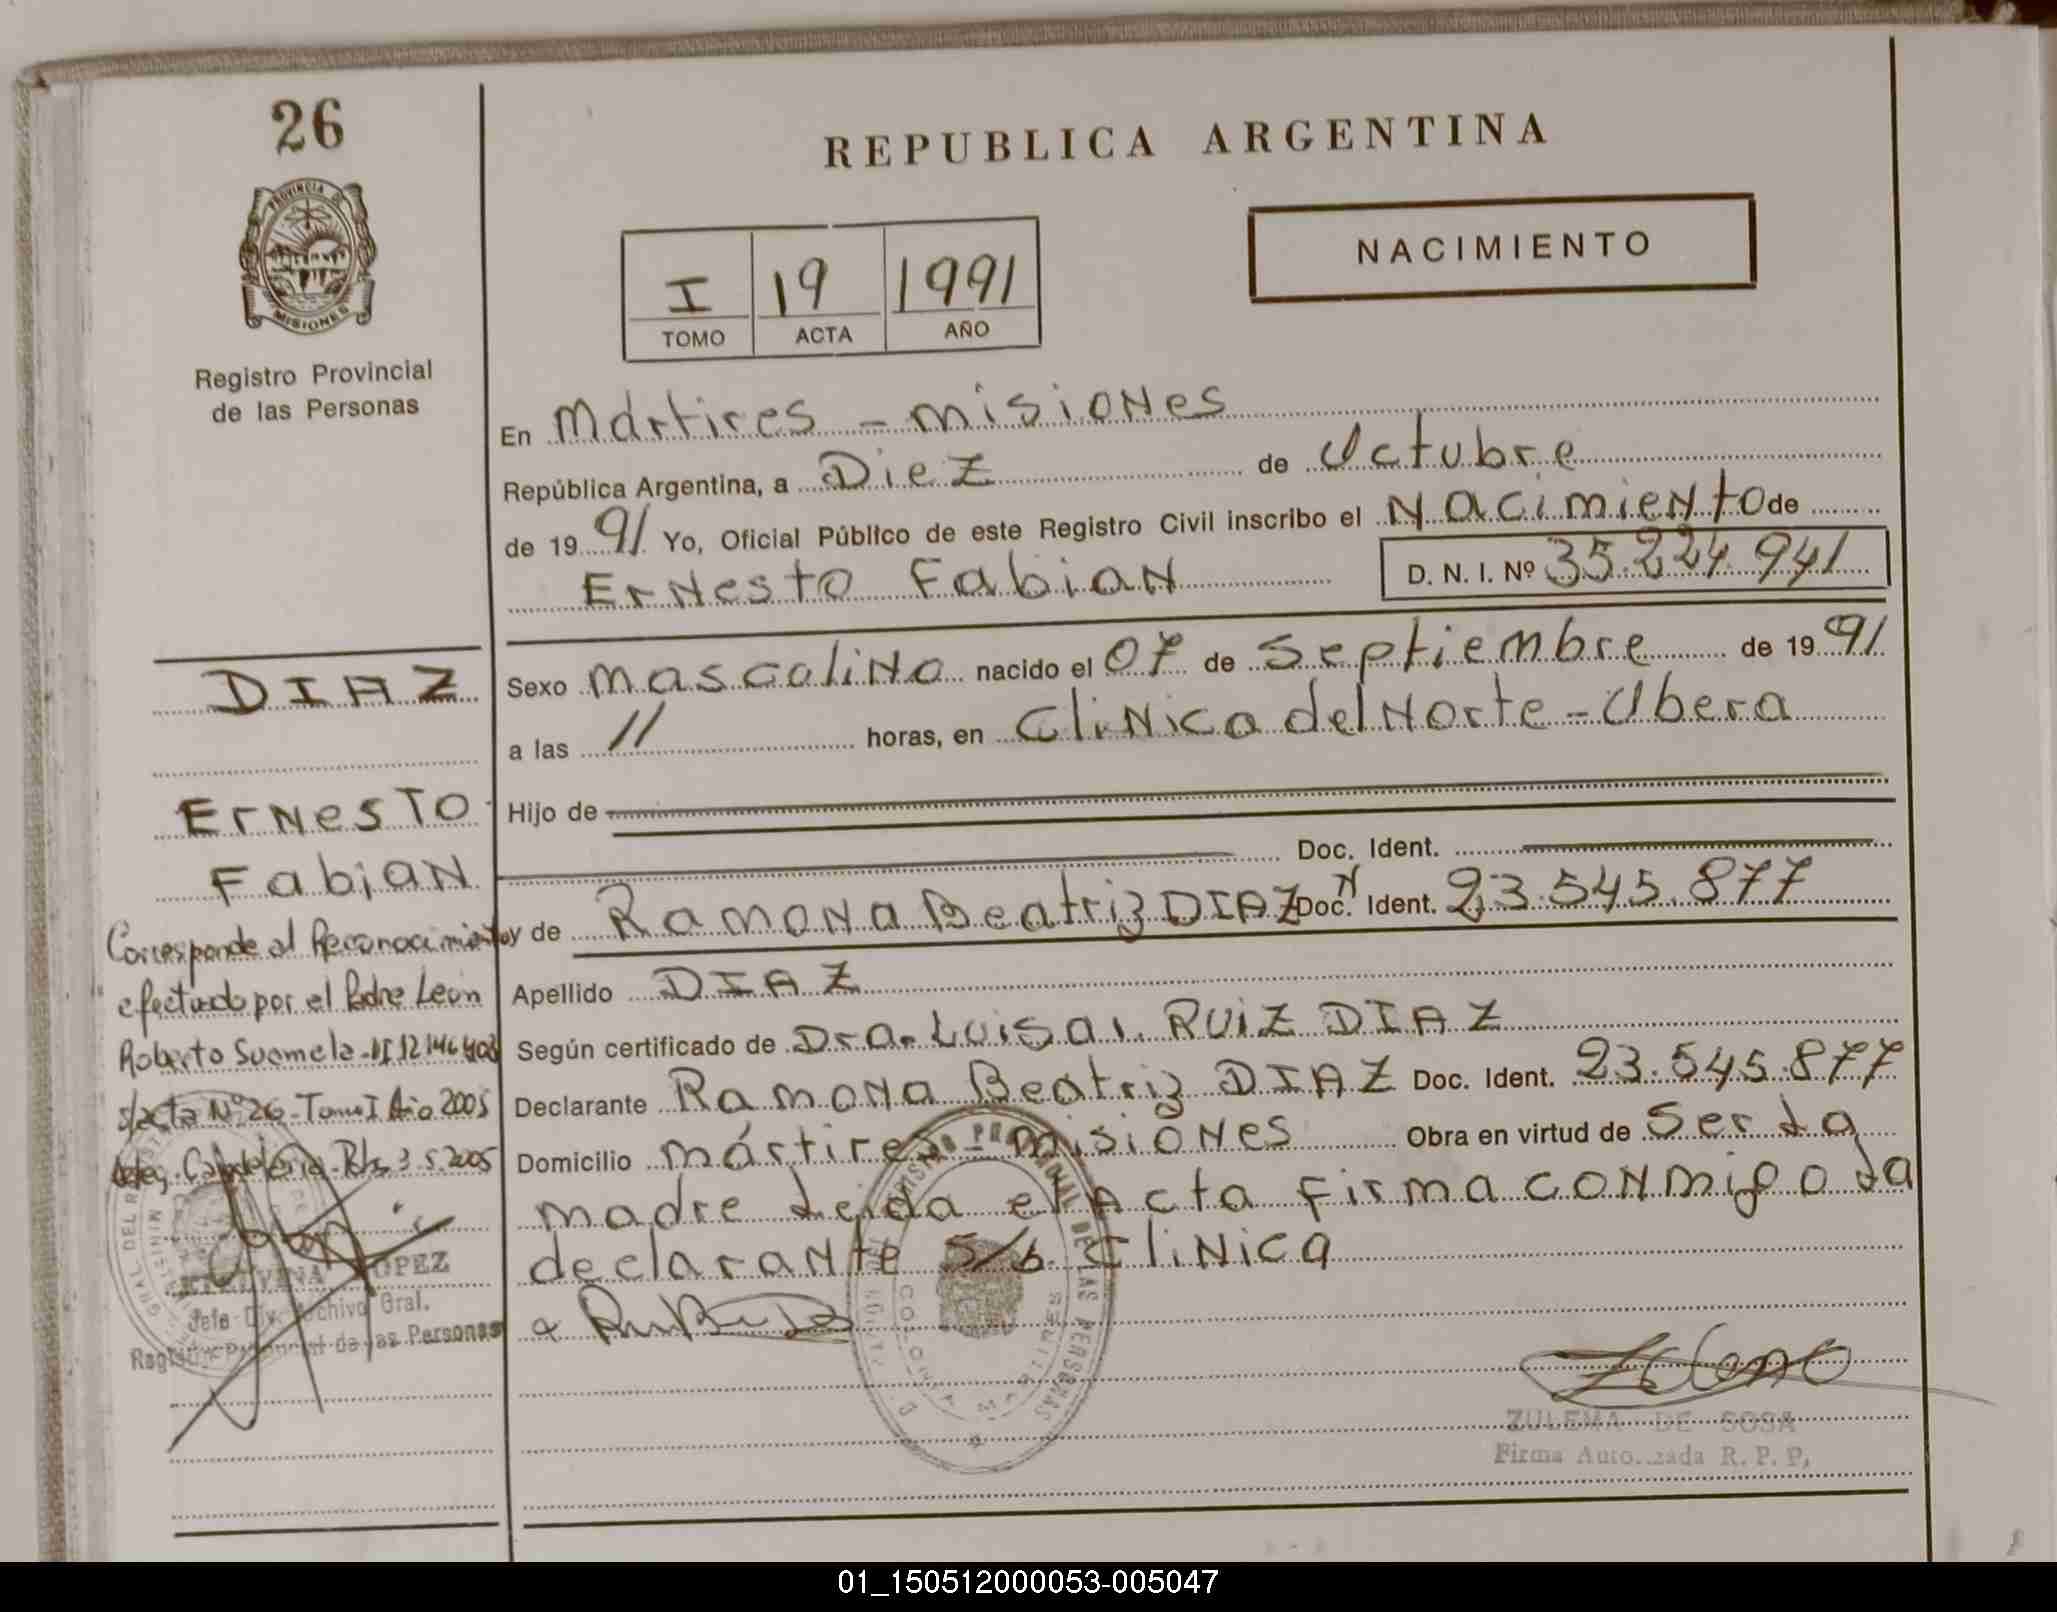 26
PROVINCIA DE
MISIONES
Registro Provincial
de las Personas
REPUBLICA ARGENTINA
NACIMIENTO
I 19 1991
TOMO ACTA AÑO
En Mártires - misiones
República Argentina, a Diez de Octubre
de 1991 Yo, Oficial Público de este Registro Civil inscribo el Nacimiento de
Ernesto Fabian D. N. I. Nº 35.224.941
Sexo masculino nacido el 07 de Septiembre de 1991
a las 11 horas, en Clinica del Norte - Obera
Hijo de
Doc. Ident.
y de Ramona Beatriz DIAZ Doc. N Ident. 23.545.877
Apellido DIAZ
Según certificado de Dra. Luisa I. RUIZ DIAZ
Declarante Ramona Beatriz DIAZ Doc. Ident. 23.545.877
Domicilio mártires - misiones Obra en virtud de Ser La
madre Leida el Acta firma conmigo La
declarante S/b. Clinica
DIAZ
Ernesto
Fabian
Corresponde al Reconocimiento
efectuado por el Padre Leon
Roberto Suomela - DI 12146408
s/acta Nº 26 - Tomo I Año 2005
Deleg. Candelaria - 3.5.2005
LOPEZ
Jefe Div. Archivo Gral.
Registro Provincial de las Personas
ZULEMA DE SOSA
Firma Autorizada R. P. P,
01_150512000053-005047